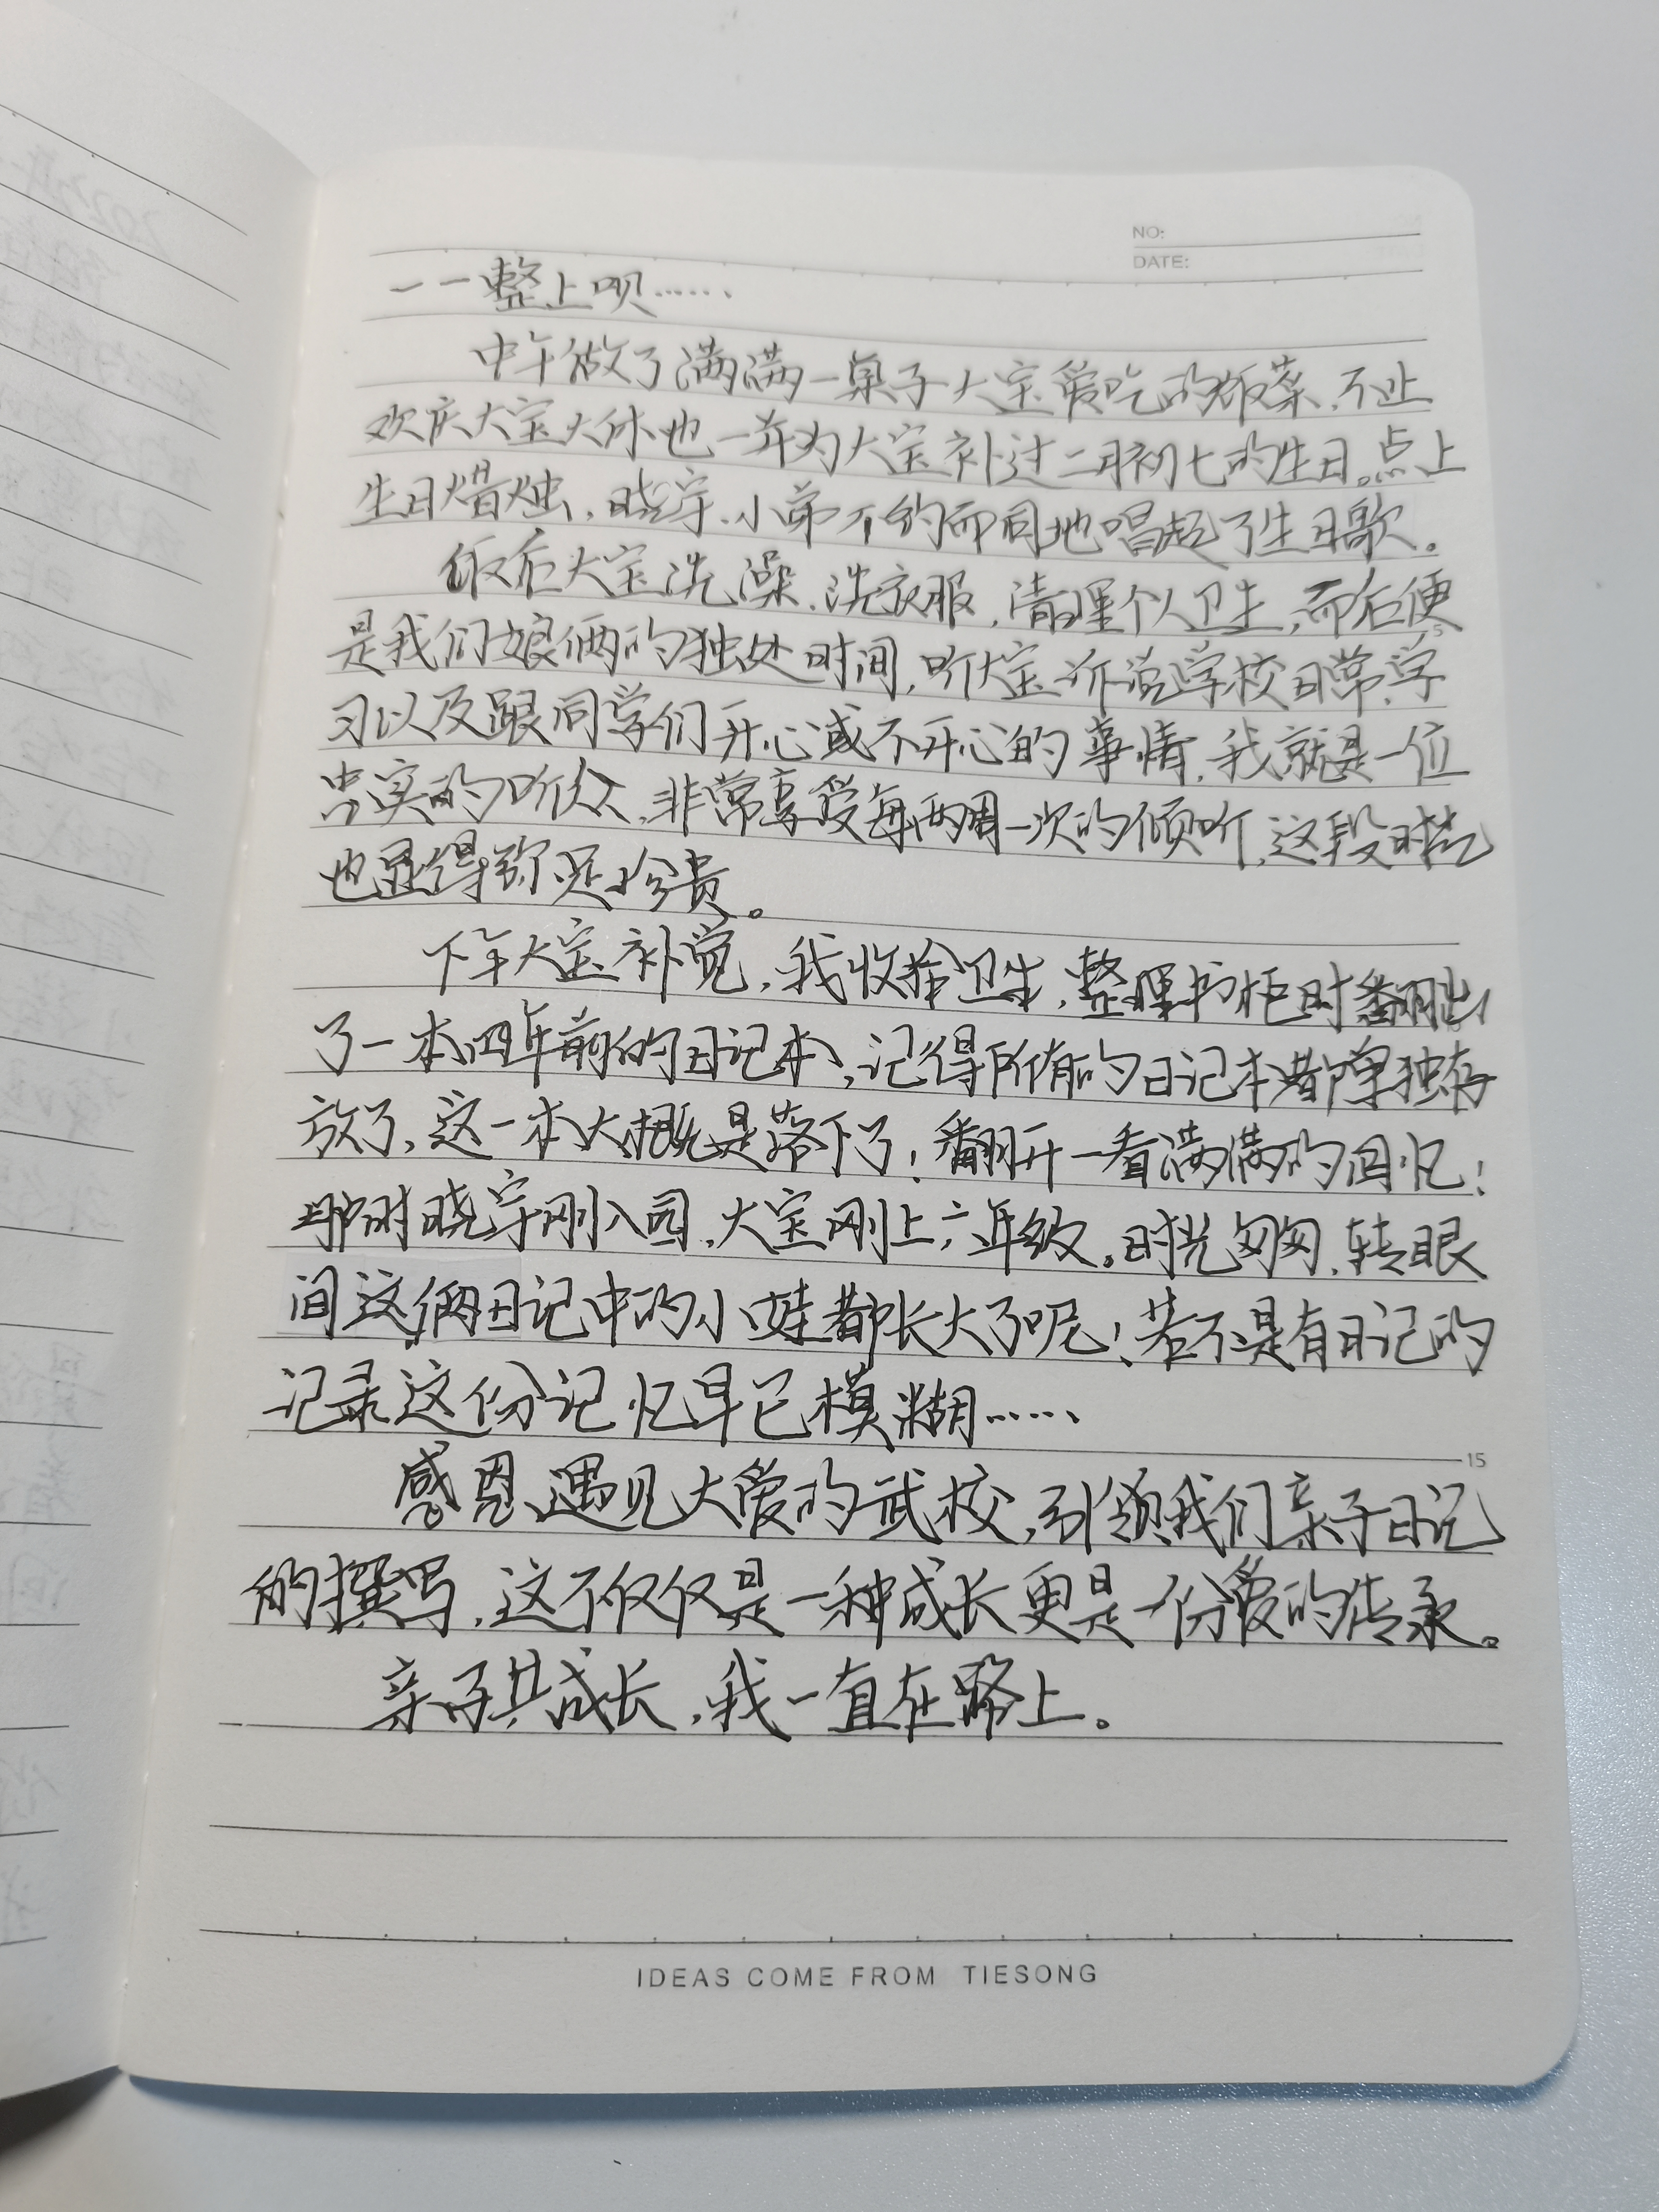 NO:
DATE:
一一整上呗……
中午做了满满一桌子大宝爱吃的饭菜,不止
欢庆大宝大休也一并为大宝补过二月初七的生日。点上
生日蜡烛,晓宇、小弟不约而同地唱起了生日歌。
饭后大宝洗澡、洗衣服,清理个人卫生,而后便
是我们娘俩的独处时间,听大宝诉说学校日常、学
习以及跟同学们开心或不开心的事情,我就是一位
忠实的听众,非常享受每两周一次的倾听,这段时光
也显得弥足珍贵。
下午大宝补觉,我收拾卫生,整理书柜时翻出
了一本四年前的日记本,记得所有的日记本都单独存
放了,这一本大概是落下了!翻开一看满满的回忆!
那时晓宇刚入园,大宝刚上六年级。时光匆匆,转眼
间这俩日记中的小娃都长大了呢!若不是有日记的
记录这份记忆早已模糊……
15
感恩遇见大爱的武校,引领我们亲子日记
的撰写,这不仅仅是一种成长更是一份爱的传承。
亲子共成长,我一直在路上。
IDEAS COME FROM TIESONG